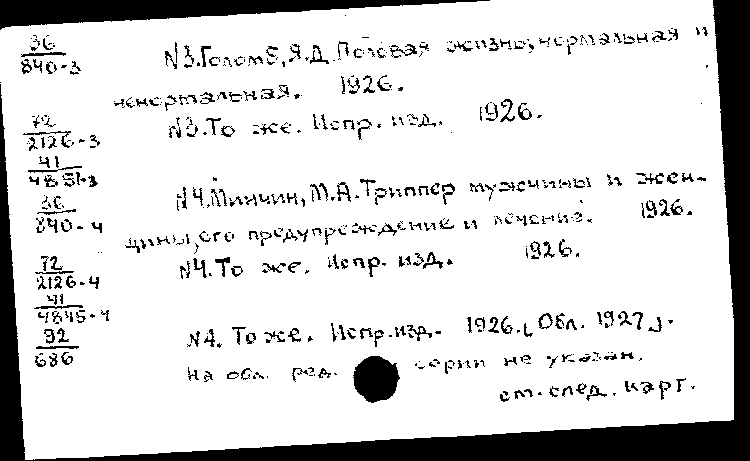 36
840-3 N3.Голомб, Я.Д. Половая жизнь, нормальная и
ненормальная. 1926.
72
2126-3 N3.То же. Испр. изд. 1926.
41
4851-3
36 N4.Минчин, М.А. Триппер мужчины и жен-
840-4 щины, его предупреждение и лечение. 1926.
72
2126-4 N4.То же. Испр. изд. 1926.
41
4845-4
92 N4. То же. Испр. изд. 1926. [Обл. 1927].
686 На обл. ред. серии не указан.
см. след. карт.